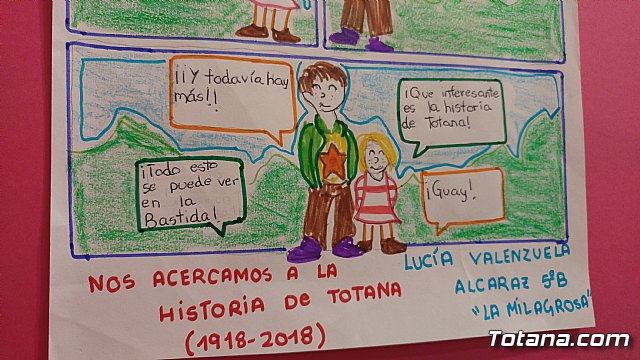 ¡¡Y todavía hay
más!!
¡Que interesante
es la historia
de Totana!
¡Todo esto
se puede ver
en la
Bastida!
¡Guay!
NOS ACERCAMOS A LA
HISTORIA DE TOTANA
(1918-2018)
LUCÍA VALENZUELA
ALCARAZ 5ºB
"LA MILAGROSA"
Totana.com